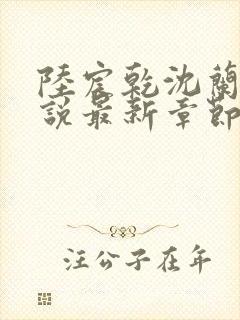 陸宸乾沈蘭
說最新章節
汪公子在年